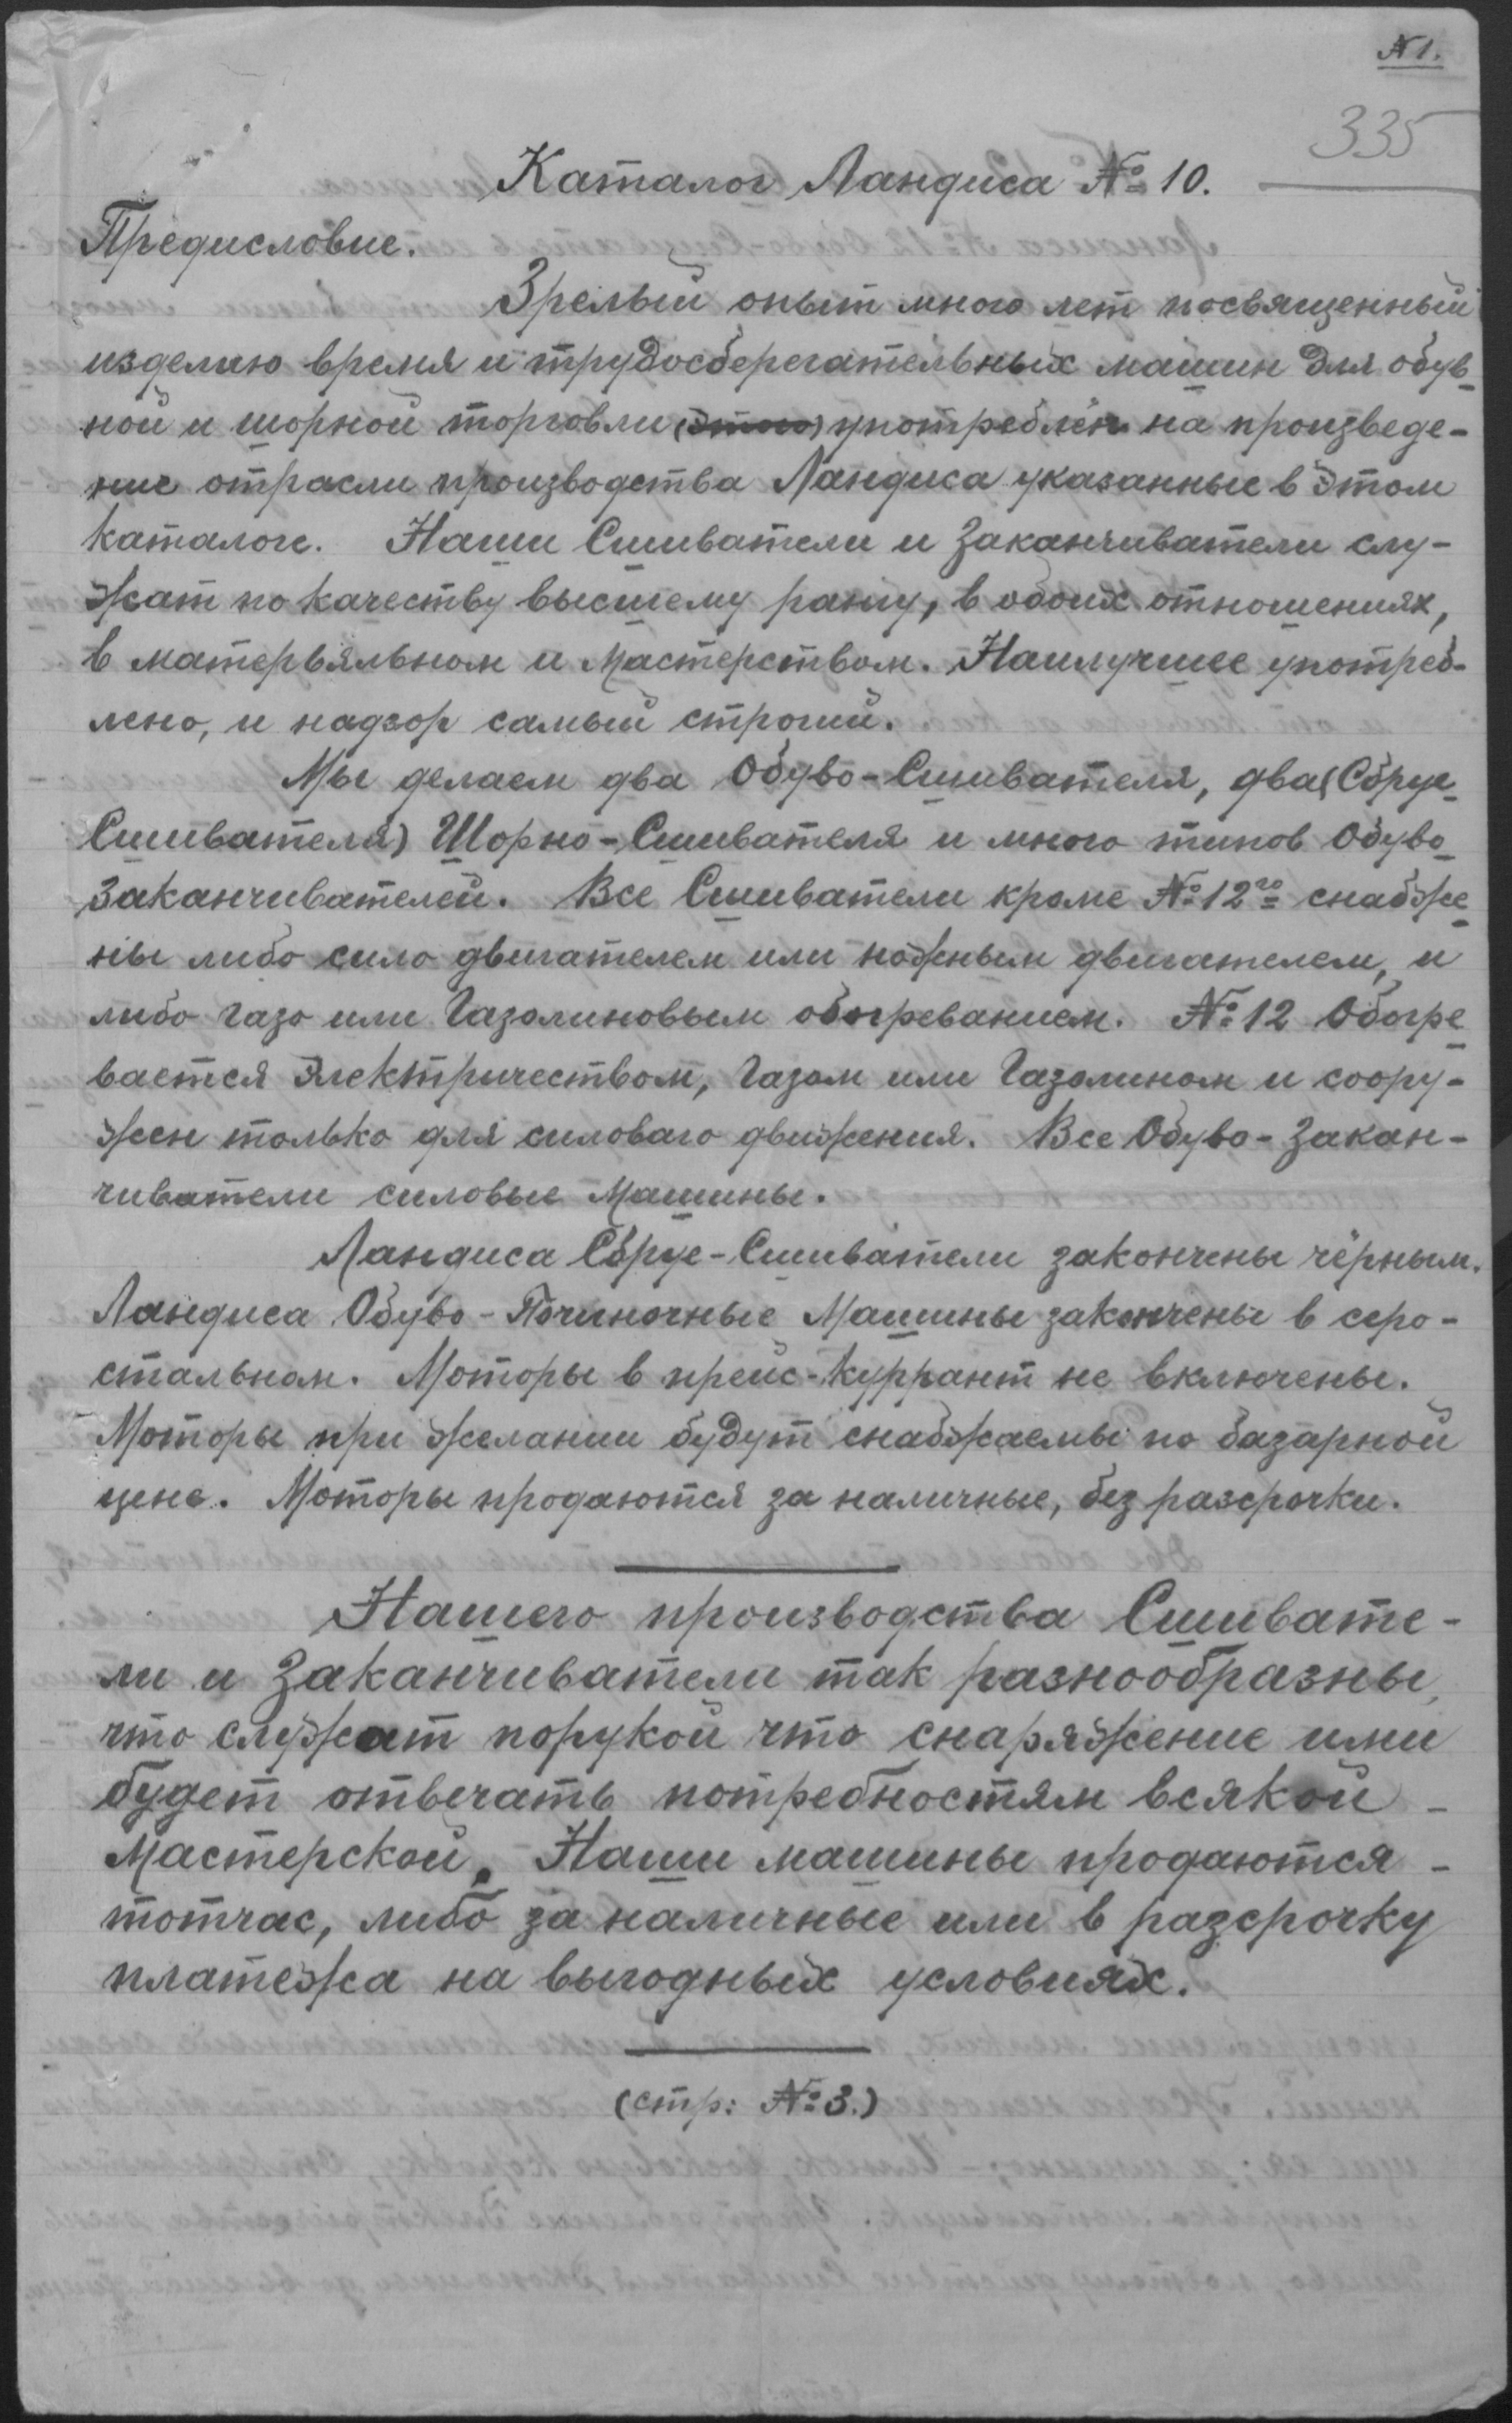 № 1.
335
Каталог Ландиса № 10.
Предисловие.
Зрелый опыт много лет посвященный
изделию время и трудосберегательных машин для обув-
ной и шорной торговли (этого) употреблён на произведе-
ние отрасли производства Ландиса указанные в этом
каталоге. Наши Сшиватели и Заканчиватели слу-
жат по качеству высшему рангу, в обоих отношениях,
в матерьяльном и Мастерством. Наилучшее употреб-
лено, и надзор самый строгий.
Мы делаем два Обуво-Сшивателя, два (Сбруе-
Сшивателя) Шорно-Сшивателя и много типов Обуво-
Заканчивателей. Все Сшиватели кроме № 12го снабже-
ны либо сило двигателем или ножным двигателем, и
либо газо или Газолиновым обогреванием. № 12 Обогре-
вается Электричеством, Газом или Газолином и соору-
жен только для силоваго движения. Все Обуво-Закан-
чиватели силовые Машины.
Ландиса Сбруе-Сшиватели закончены чёрным.
Ландиса Обуво-Починочные Машины закончены в серо-
стальном. Моторы в прейс-куррант не включены.
Моторы при желании будут снабжаемы по базарной
цене. Моторы продаются за наличные, без разсрочки.
Нашего производства Сшивате-
ли и Заканчиватели так разнообразны,
что служат порукой что снаряжение ими
будет отвечать потребностям всякой -
Мастерской. Наши машины продаются -
тотчас, либо за наличные или в разсрочку
платежа на выгодных условиях.
(стр: № 3.)